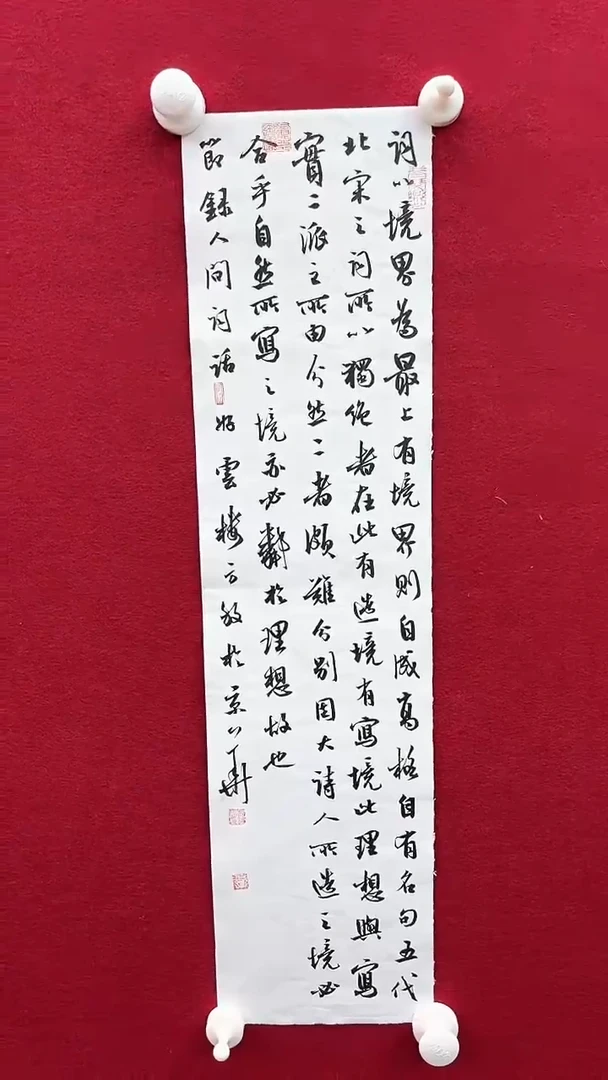 詞以境界為最上有境界則自成高格自有名句五代
北宋之詞所以獨絶者在此有造境有寫境此理想與寫
實二派之所由分然二者頗難分別因大詩人所造之境必
合乎自然所寫之境亦必鄰於理想故也
節録人間詞話 好雲樓方放於京